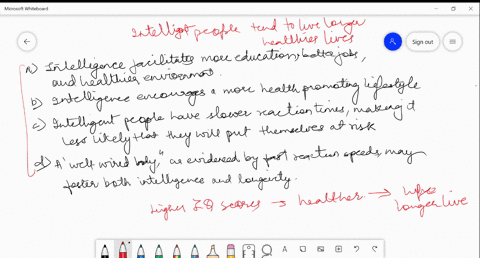 Microsoft Whiteboard
Sign out
Intelligent people tend to live longer
healthies lives
a) Intelligence facilitates more education, better jobs,
and healthier environment.
b) Intelligence encourages a more health promoting lifestyle
c) Intelligent people have slower reaction times, making it
less likely that they will put themselves at risk
d) A "well wired body," as evidenced by fast reaction speeds, may
foster both intelligence and longevity.
Higher IQ scores → healthier →
longer live